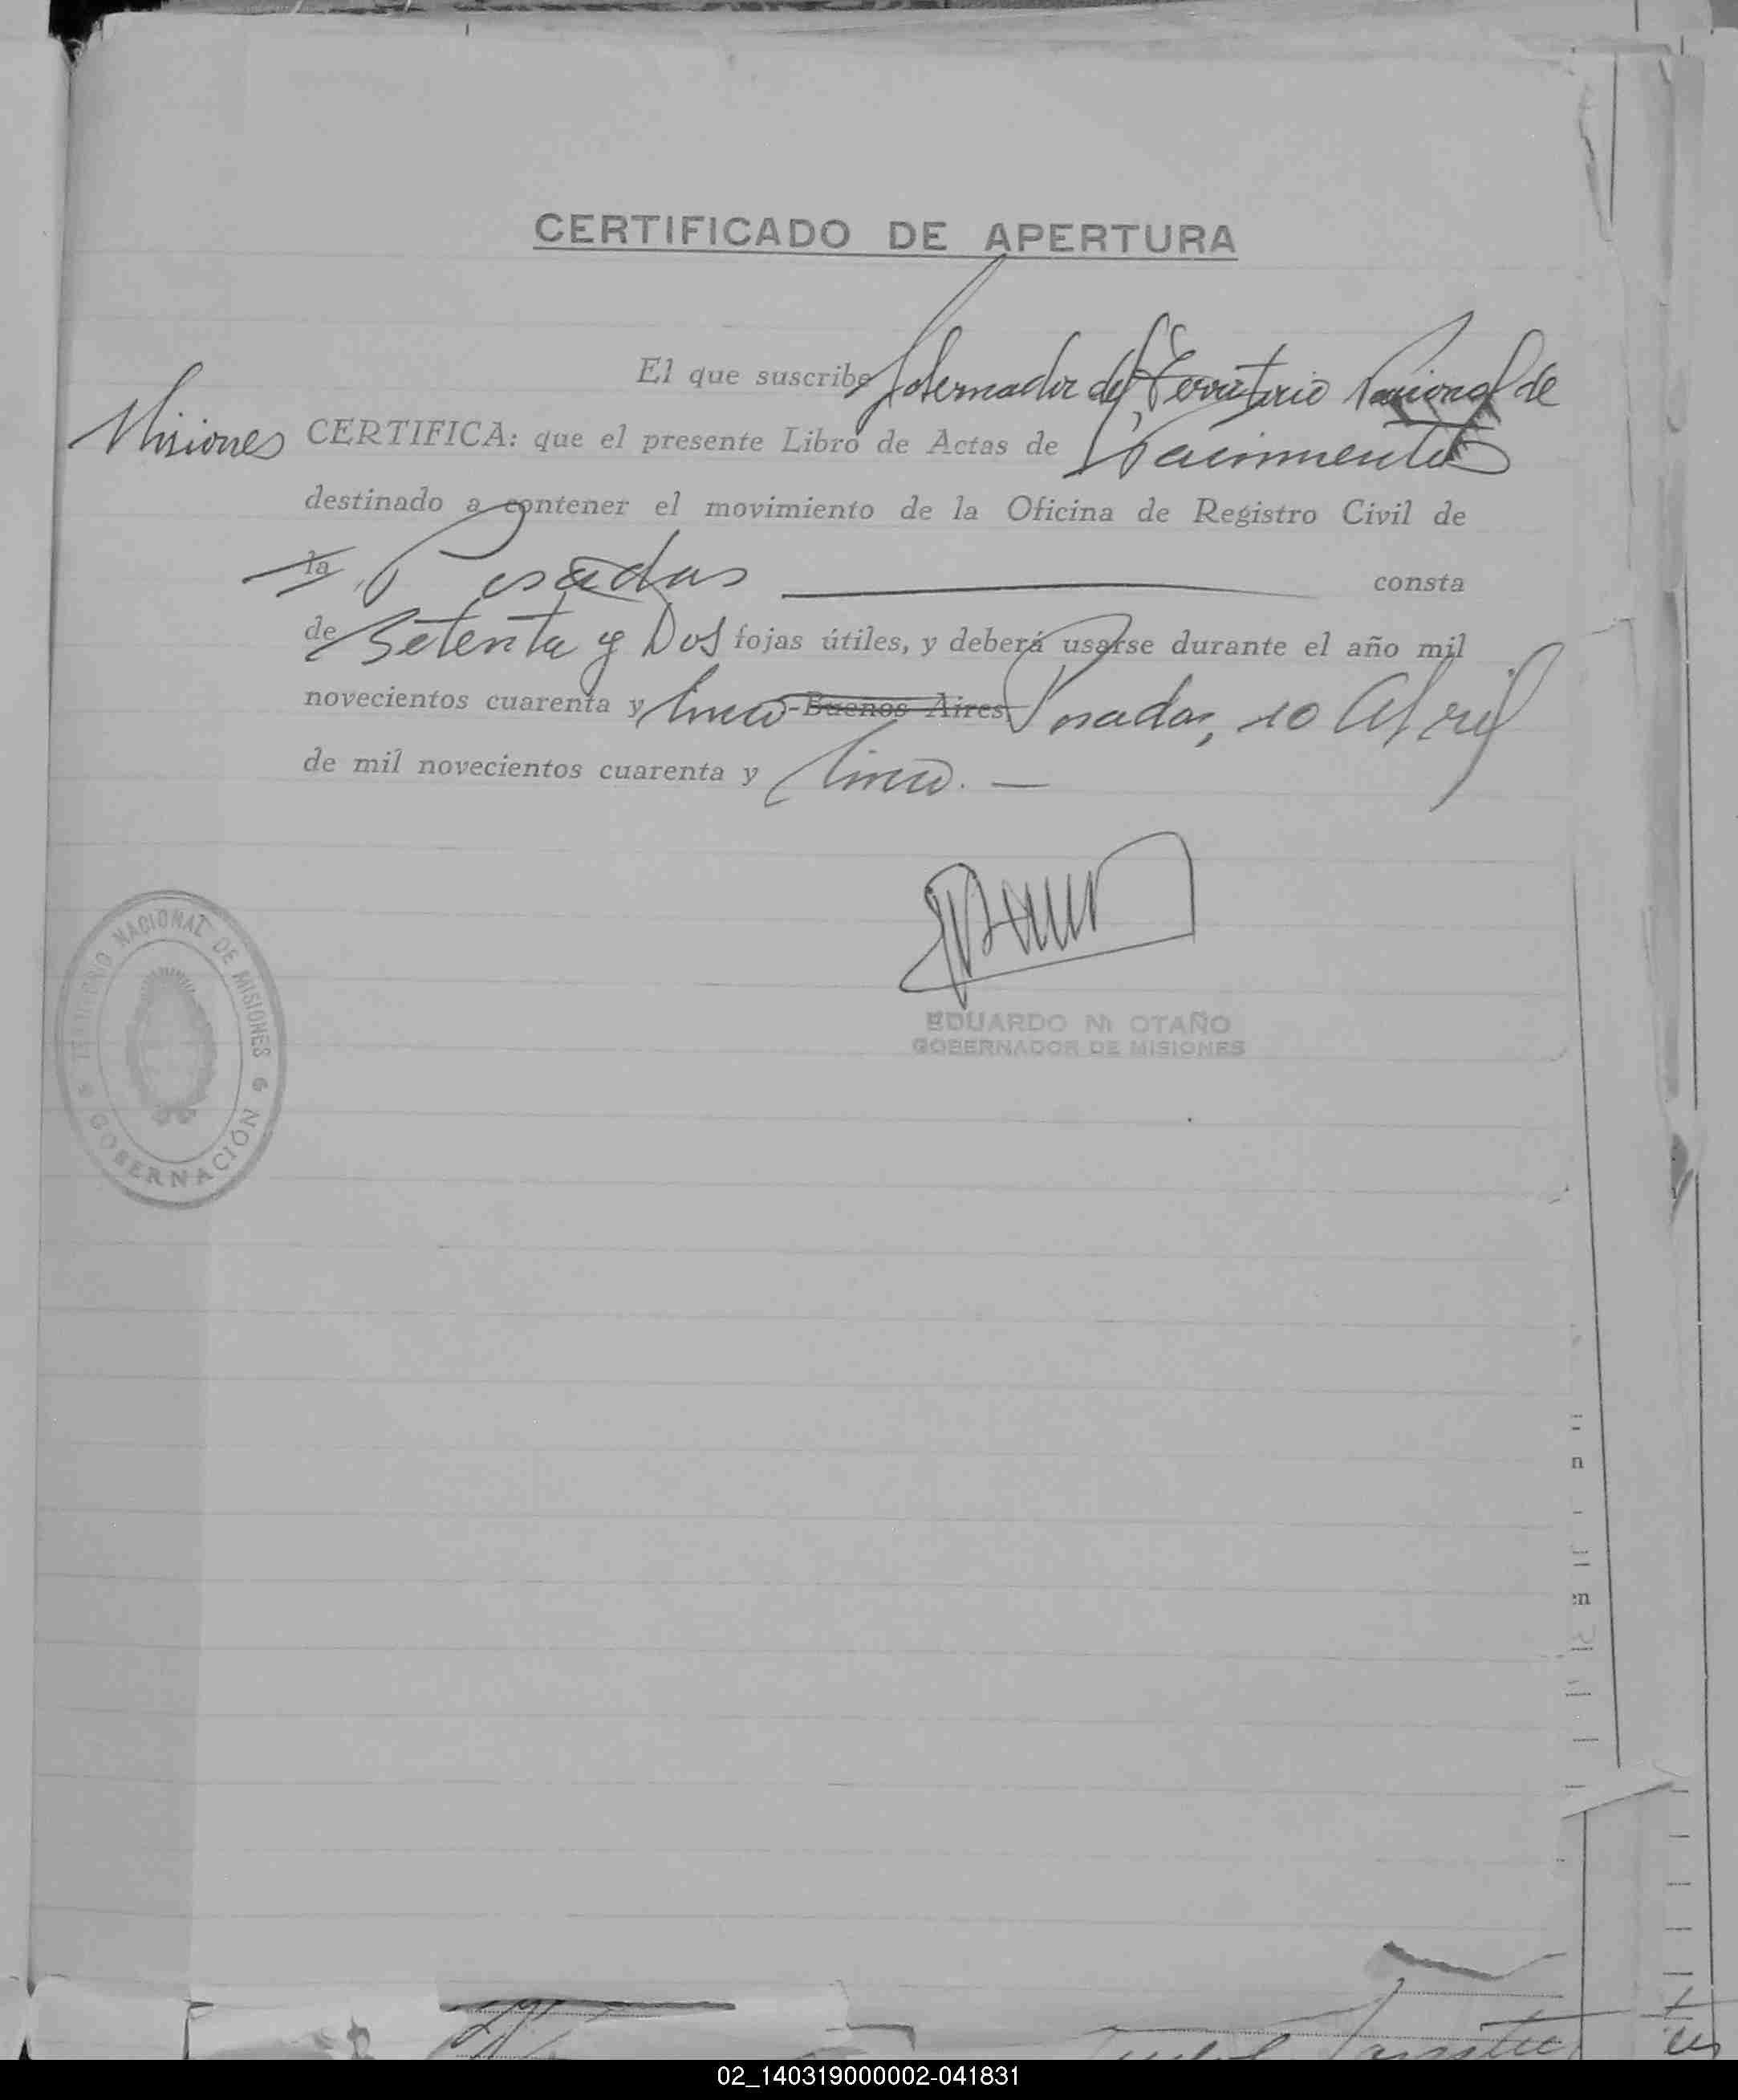 CERTIFICADO DE APERTURA
El que suscribe Gobernador del Territorio Nacional de
Misiones CERTIFICA: que el presente Libro de Actas de Nacimientos
destinado a contener el movimiento de la Oficina de Registro Civil de
la Posadas consta
de Setenta y Dos fojas útiles, y deberá usarse durante el año mil
novecientos cuarenta y cinco - Buenos Aires, Posadas, 10 Abril
de mil novecientos cuarenta y cinco. —
EDUARDO M OTAÑO
GOBERNADOR DE MISIONES
TERRITORIO NACIONAL DE MISIONES
GOBERNACIÓN
n
en
02_140319000002-041831